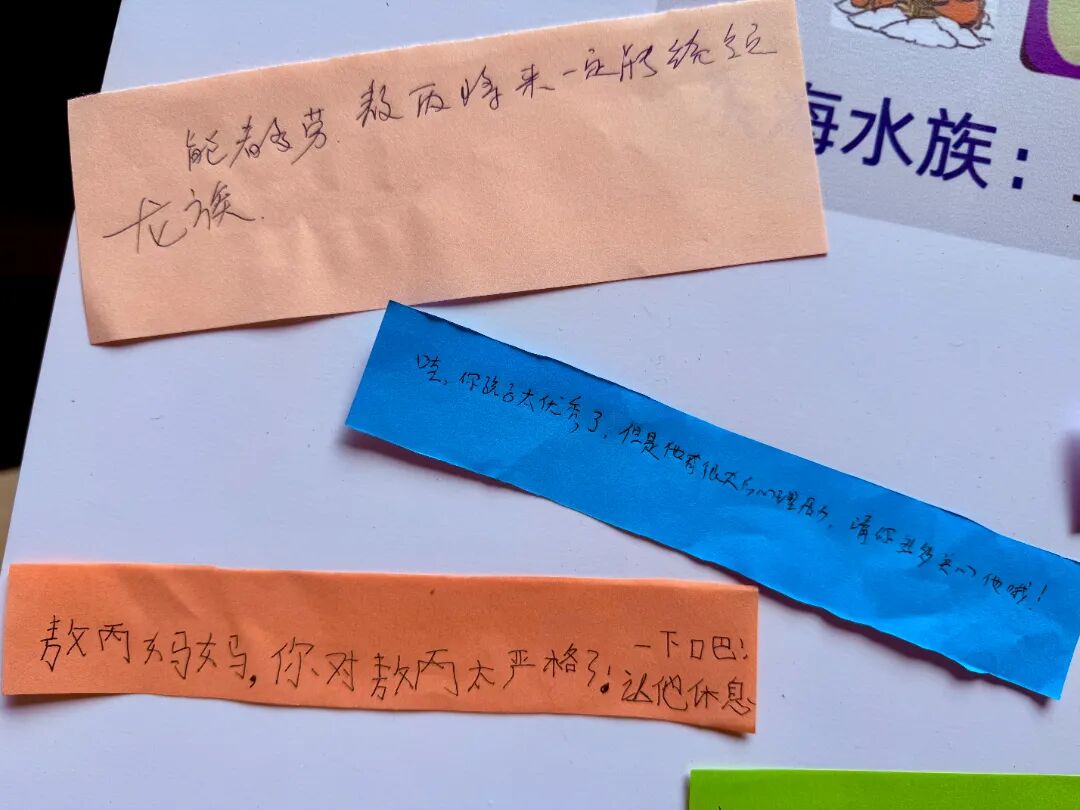 能者多劳.敖丙将来一定能统领
龙族.
海水族：
哇，你孩子太优秀了，但是他有很大的心理压力，请你要多关心他哦！
敖丙妈妈，你对敖丙太严格了！让他休息
一下口巴！